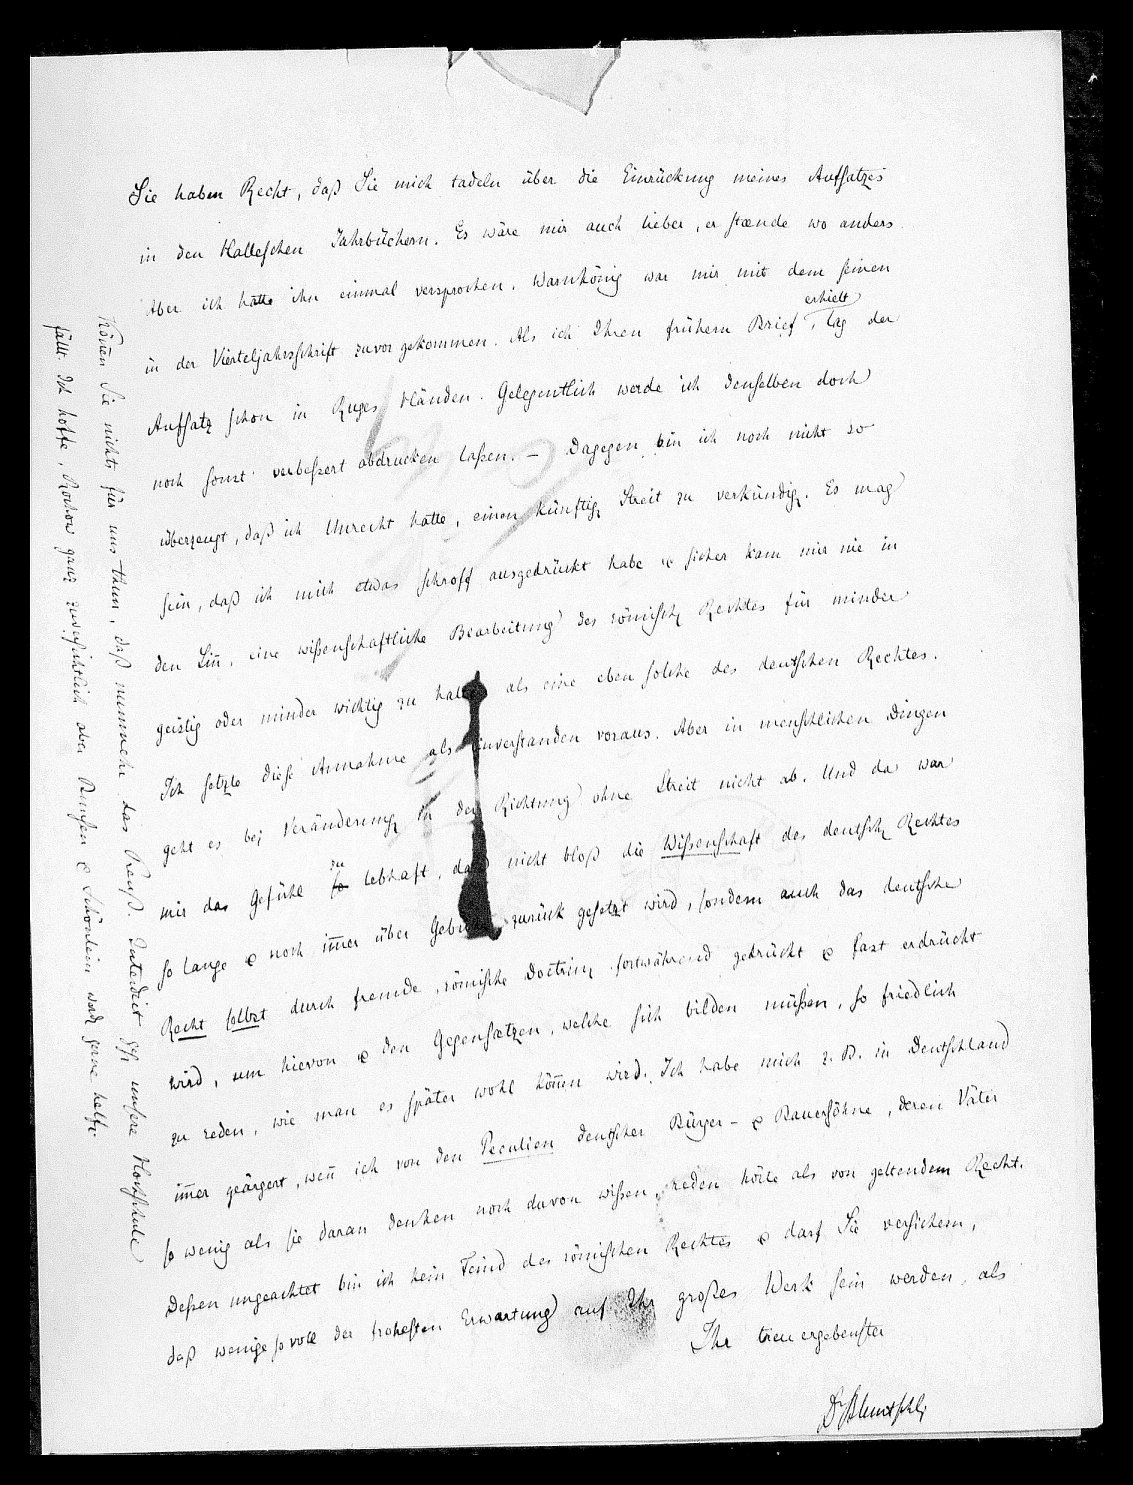 Sie haben Recht, daß Sie mich tadeln über die Einrückung meines Aufsatzes
in den Halleschen Jahrbüchern. Es wäre mir auch lieber, er stænde wo anders.
Aber ich hatte ihn einmal versprochen. Warnkönig war mir mit dem seinen
in der Vierteljahrsschrift zuvor gekommen. Als ich Ihren frühern Brief erhielt, lag der
Aufsatz schon in Ruges Händen. Gelegentlich werde ich denselben doch
noch sonst verbeßert abdrucken laßen. – Dagegen bin ich noch nicht so
überzeugt, daß ich Unrecht hatte, einen künftig Streit zu verkündig. Es mag
sein, daß ich mich etwas schroff ausgedrückt habe & sicher kam mir nie in
den Sin̄, eine wißenschaftliche Bearbeitung des römisch Rechtes für minder
geistig oder minder wichtig zu hal als eine eben solche des deutschen Rechtes.
Ich setzte diese Annahme als einverstanden voraus. Aber in menschlichen Dingen
geht es bei Veränderung in der Richtung ohne Streit nicht ab. Und da war
mir das Gefühl zu lebhaft, daß nicht bloß die Wißenschaft des deutsch Rechtes
so lange & noch im̄er über Gebü zurück gesetzt wird, sondern auch das deutsche
Recht selbst durch fremde, römische Doctrin fortwährend gedrückt & fast erdrückt
wird, um hievon & den Gegensætzen, welche sich bilden müßen, so friedlich
zu reden, wie man es später wohl kön̄en wird. Ich habe mich z. B. in Deutschland
im̄er geärgert, wen̄ ich von den Peculien deutscher Bürger- & Bauersöhne, deren Väter
so wenig als sie daran denken noch davon wißen, reden hörte als von geltendem Recht.
Deßen ungeachtet bin ich kein Feind des römischen Rechtes & darf Sie versichern,
daß wenige so voll der frohesten Erwartung auf Ihr großes Werk sein werden, als
Ihr treu ergebenster
Dr Bluntschli
Kön̄en Sie nichts für uns thun, daß nunmehr das Preuß. Interdict gg unsere Hochschule
fällt. Ich hoffe, Rochow ganz zuversichtlich aber Bunsen & Schönlein werd gerne helfe.